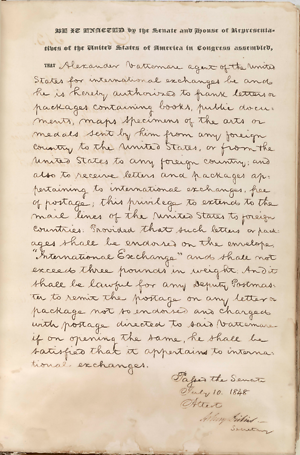 BE IT ENACTED by the Senate and House of Representa-
tives of the United States of America in Congress assembled,
THAT Alexander Vattemare agent of the United
States for international exchanges be and
he is hereby authorized to frank letters or
packages containing books, public docu-
ments, maps specimens of the arts or
medals sent by him from any foreign
country to the United States, or from the
United States to any foreign country; and
also to receive letters and packages ap-
pertaining to international exchanges, free
of postage; this privilege to extend to the
mail lines of the United States to foreign
countries. Provided that such letters or pack-
ages shall be endorsed on the envelope,
"International Exchange" and shall not
exceed three pounds in weight. And it
shall be lawful for any Deputy Postmas-
ter to remit the postage on any letter or
package not so endorsed and charged
with postage directed to said Vattemare
if on opening the same, he shall be
satisfied that it appertains to interna-
tional exchanges.
Passed the Senate
July 10. 1848
Attest
Asbury Dickins
Secretary